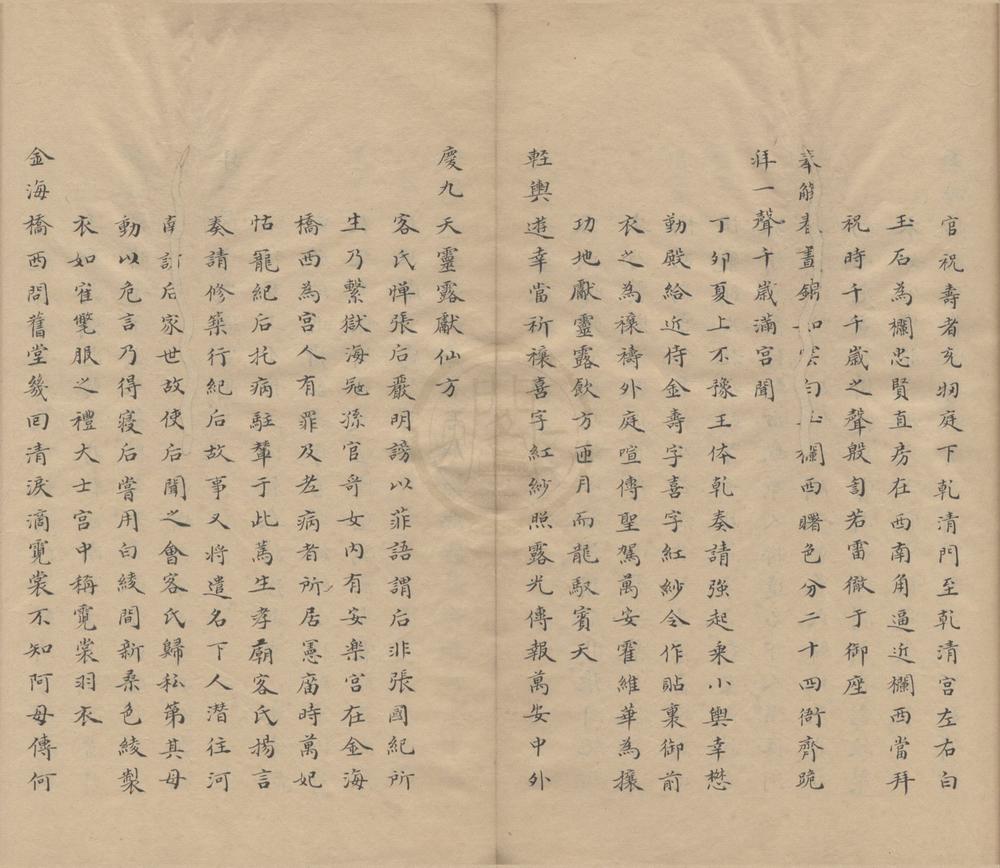 官祝壽者充牣庭下乾清門至乾清宮左右白
玉石為欄忠賢直房在西南角逼近欄西當拜
祝時千千歲之聲殷訇若雷徹于御座
奉觴晝錦如雲白玉欄西曙色分二十四衙齊跪
拜一聲千歲滿宮聞
丁卯夏上不豫王体乾奏請強起乘小輿幸懋
勤殿給近侍金壽字喜字紅紗令作貼裏御前
衣之為禳禱外庭喧傳聖駕萬安霍維華為攘
功地獻靈露飲方匝月而龍馭賓天
輕輿遊幸當祈禳喜字紅紗照露光傳報萬安中外
慶九天靈露獻仙方
客氏憚張后嚴明謗以菲語謂后非張國紀所
生乃繫獄海𡨥孫官哥女內有安楽宮在金海
橋西為宮人有罪及老病者所居憲廟時萬妃
怙寵紀后托病駐輦于此篤生孝廟客氏揚言
奏請修築行紀后故事又將遣名下人潛往河
南訪后家世故使后聞之會客氏歸私第其母
動以危言乃得寢后嘗用白綾間新桑色綾製
衣如寉氅服之禮大士宮中稱霓裳羽衣
金海橋西問舊堂幾回清淚滴霓裳不知阿母傳何